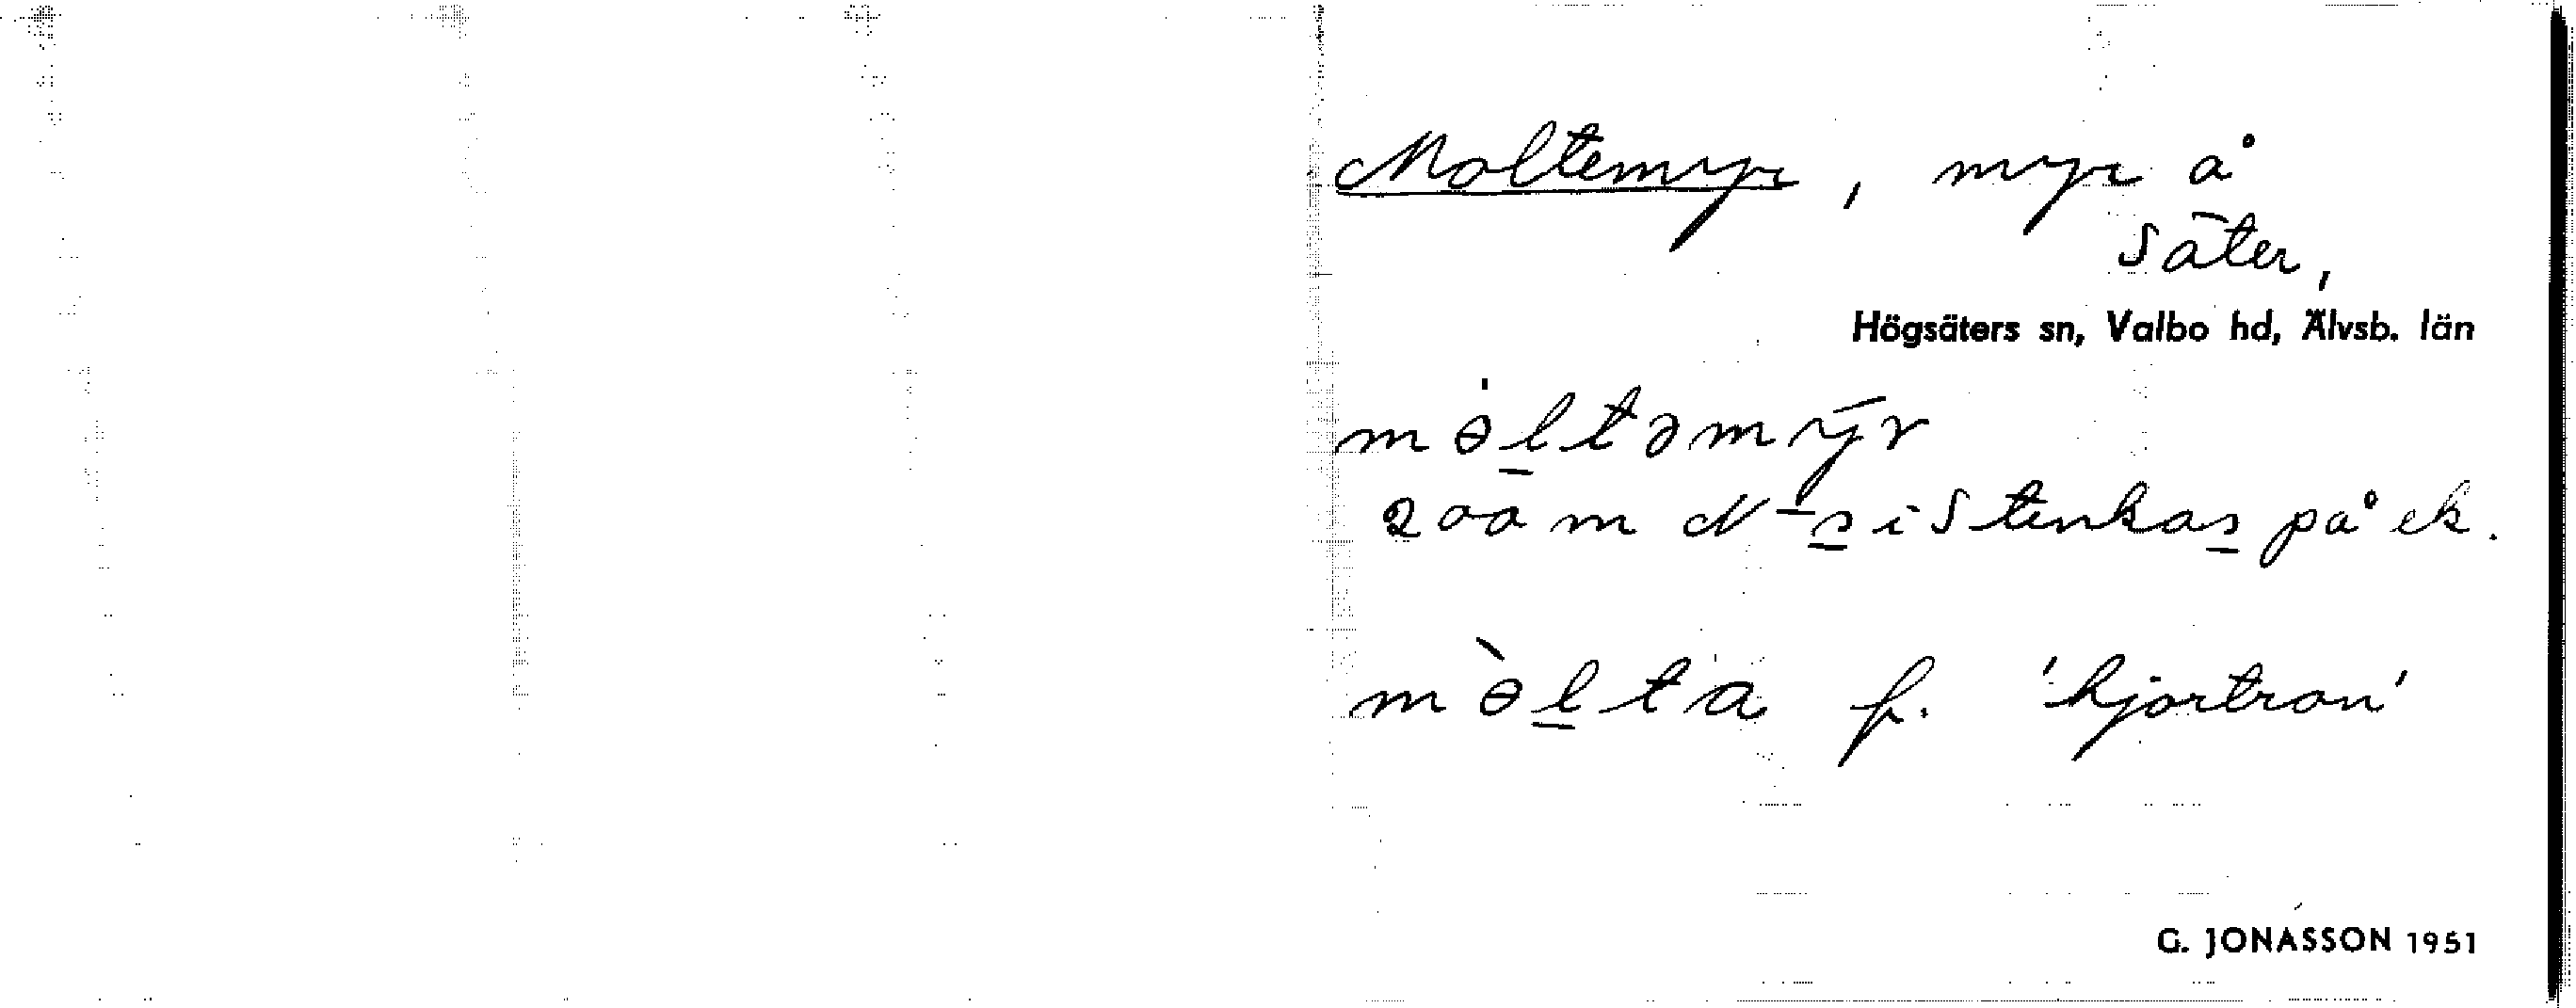 Moltemyr, myr å
Säter,
Högsäters sn, Valbo hd, Älvsb. län
mɵltəmýr
200 m N
på ek.
mɵ̀lta f. 'hjortron'
G. JONASSON 1951